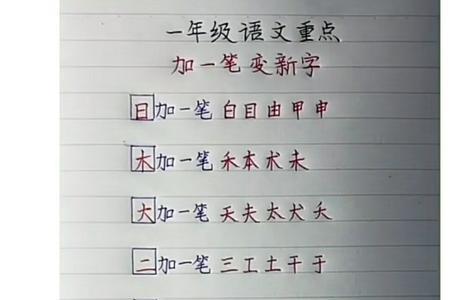 一年级语文重点
加一笔变新字
日加一笔 白目由甲申
木加一笔 禾本术未
大加一笔 天夫太犬夭
二加一笔 三工土干于